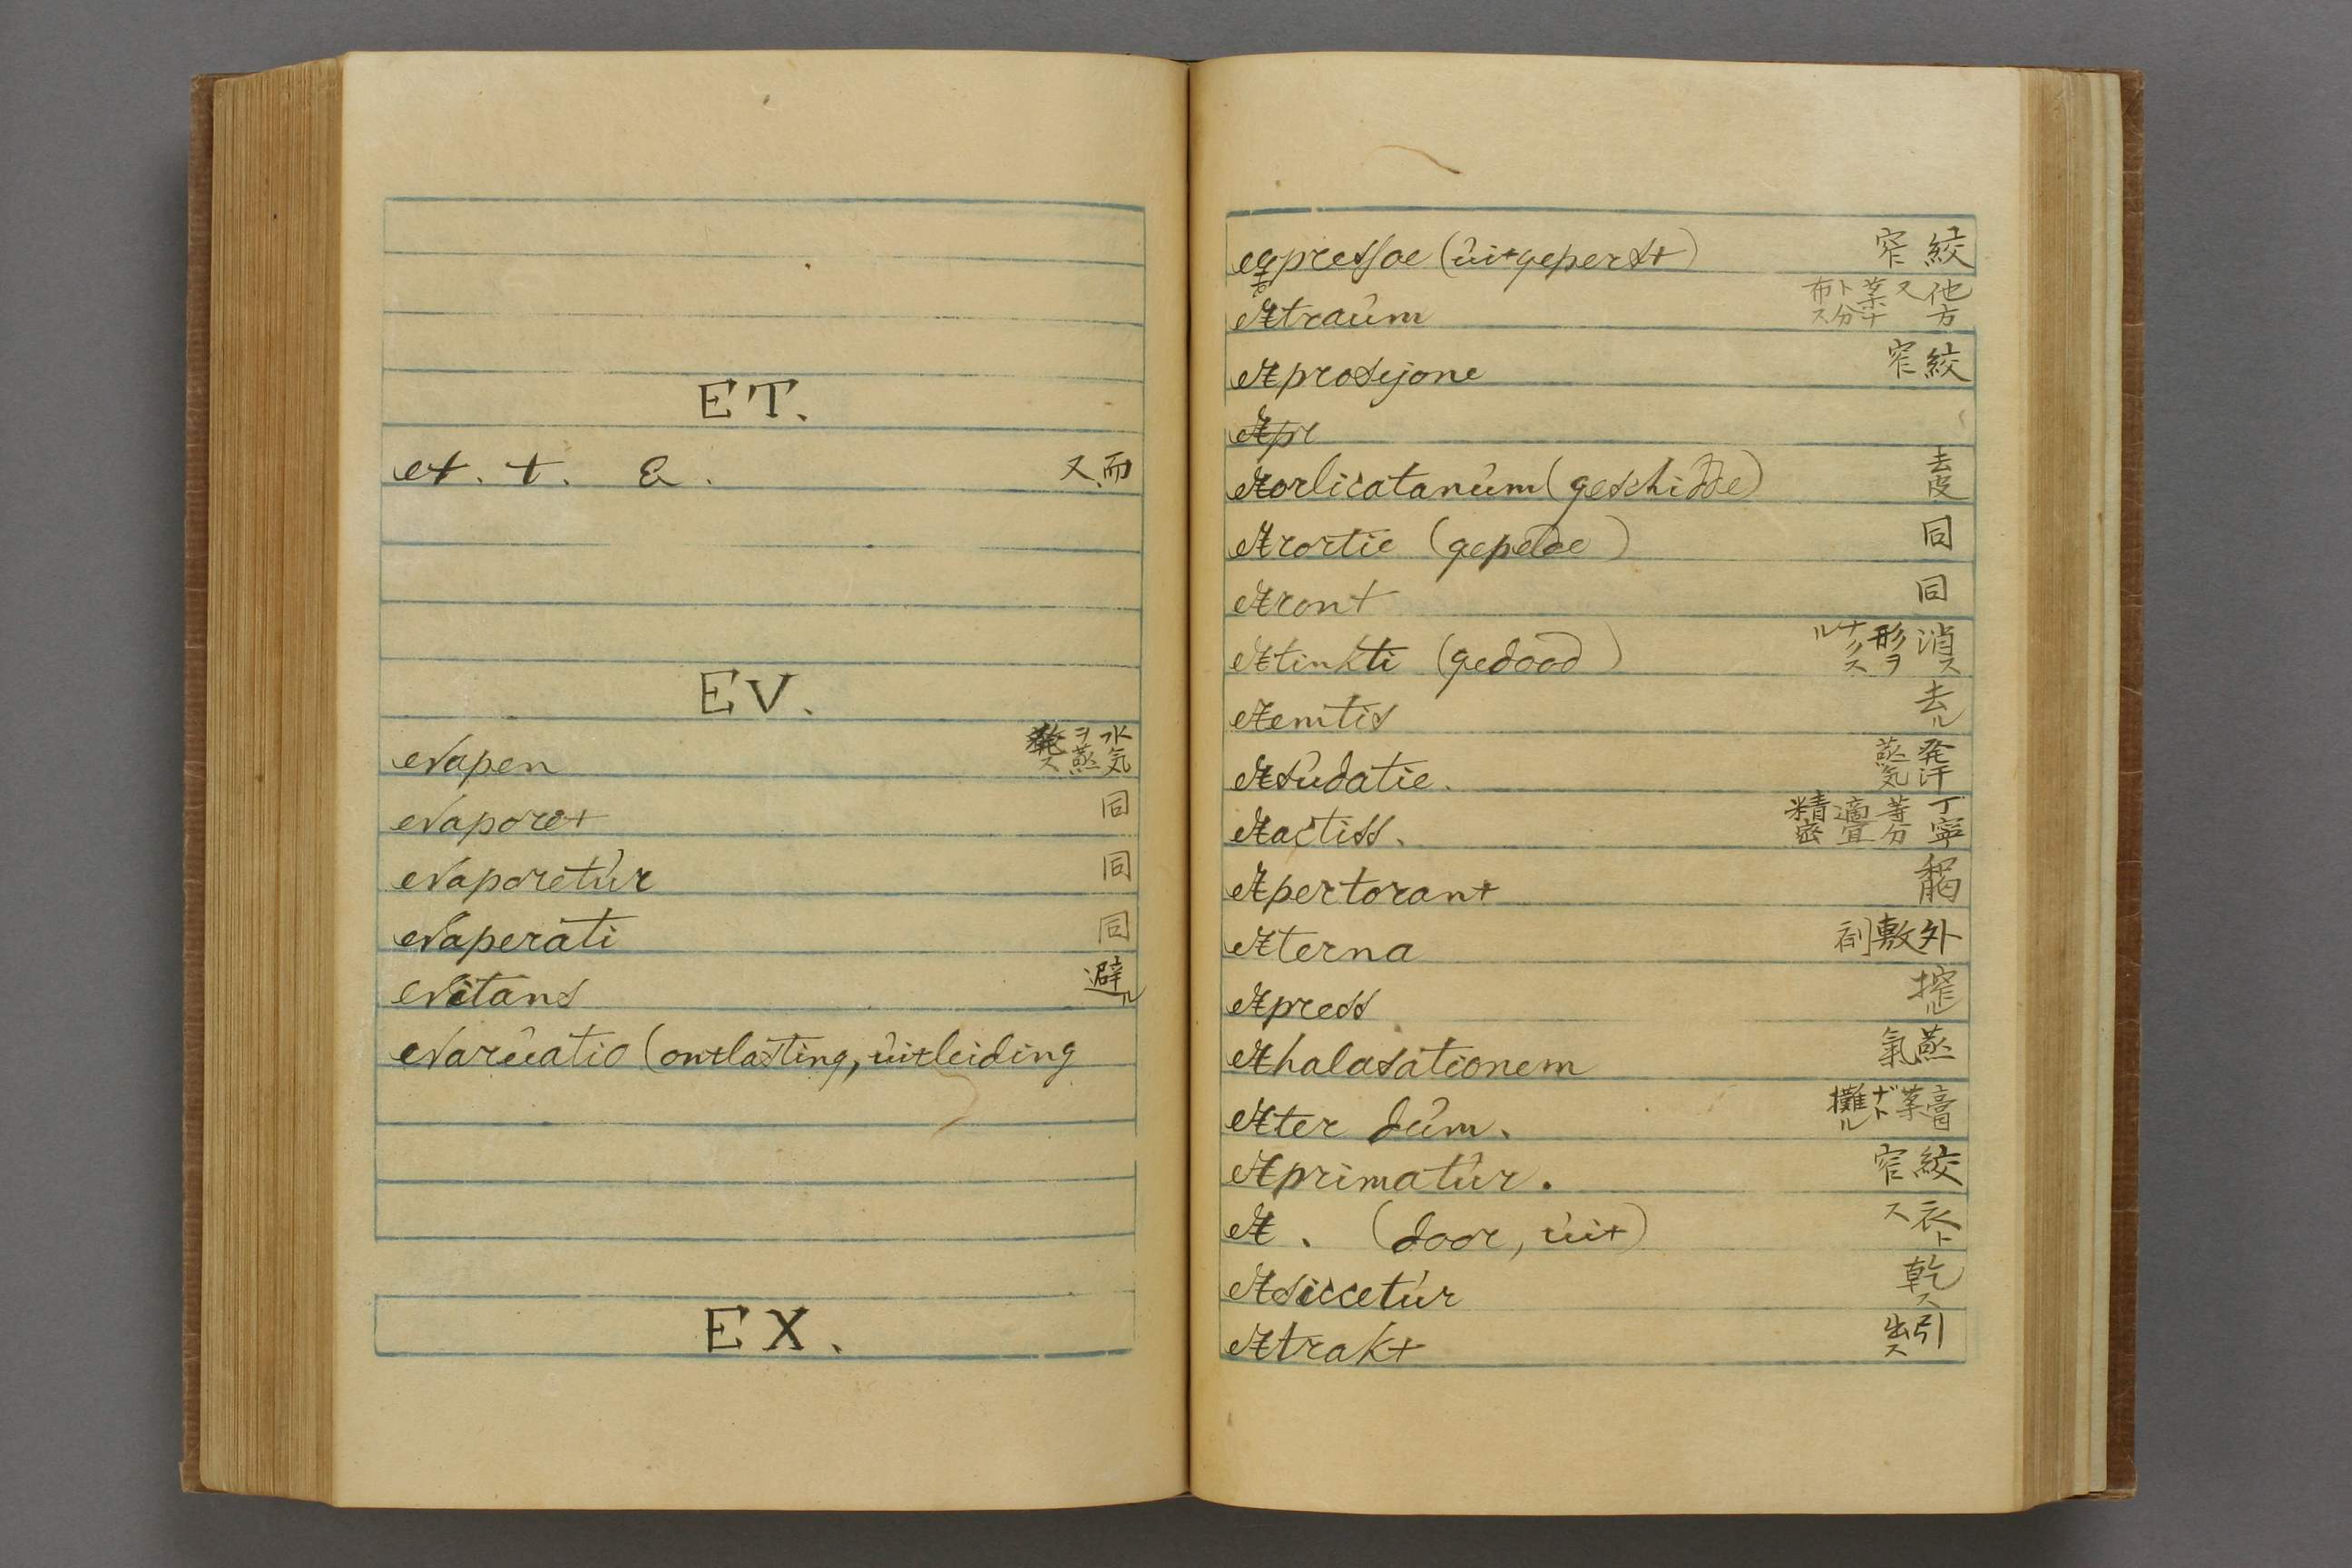 ET.
et. t. &. 又、而
EV.
evapen 水気ヲ蒸発ス
evaporet 同
evaporetúr 同
evaperati 同
evitans 避ル
evarúatio (ontlasting, úitleiding
EX.
expressoe (úitgeperst) 絞窄
extraúm 他方又
exprosijone 絞窄
expr
exorlicatanúm (geschidde) 去皮
exrortie (gepelde) 同
exront 同
extinkti (gedood) 消ス形ヲナクス
exemtis 去ル
exsúdatie. 発汗蒸気
exactiss. 丁寧等分適宜精密
expertorant
externa 外敷剤
express 搾ル
exhalasationem 蒸氣
exter dúm. 膏薬ナト攤ル
exprimatúr. 絞窄
ex. (door, úit)
exsiccetúr 乾ス
extrakt 引出ス